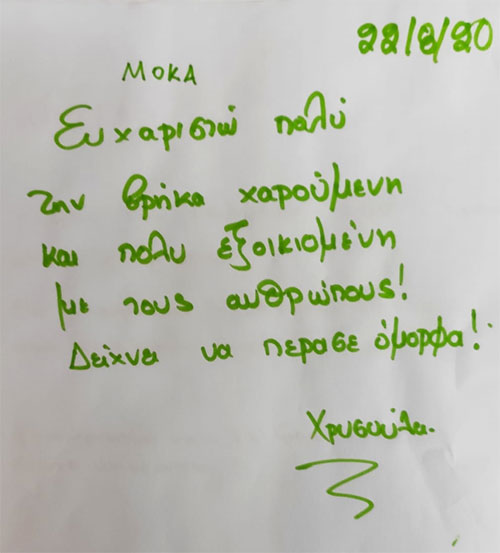 22/8/20
ΜΟΚΑ
Ευχαριστώ πολύ
την βρήκα χαρούμενη
και πολυ εξοικιομένη
με τους ανθρώπους!
Δείχνει να περασε όμορφα!
Χρυσούλα.